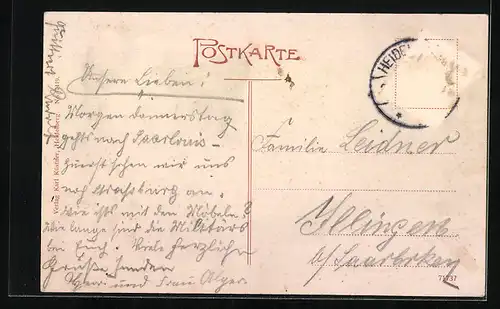 POSTKARTE
HEIDEL
Unsere Lieben!
Morgen Donnerstag
gehts nach Saarlouis
zuerst sehen wir uns
noch Strassburg an.
Wie ists mit den Möbeln?
Wie lange sind die Militärs
bei Euch. Viele herzliche
Grüße senden
und Frau Alger
Familie Leidner
Illingen
b/Saarbrken
Verlag Karl Rinder, Heidelberg
77737